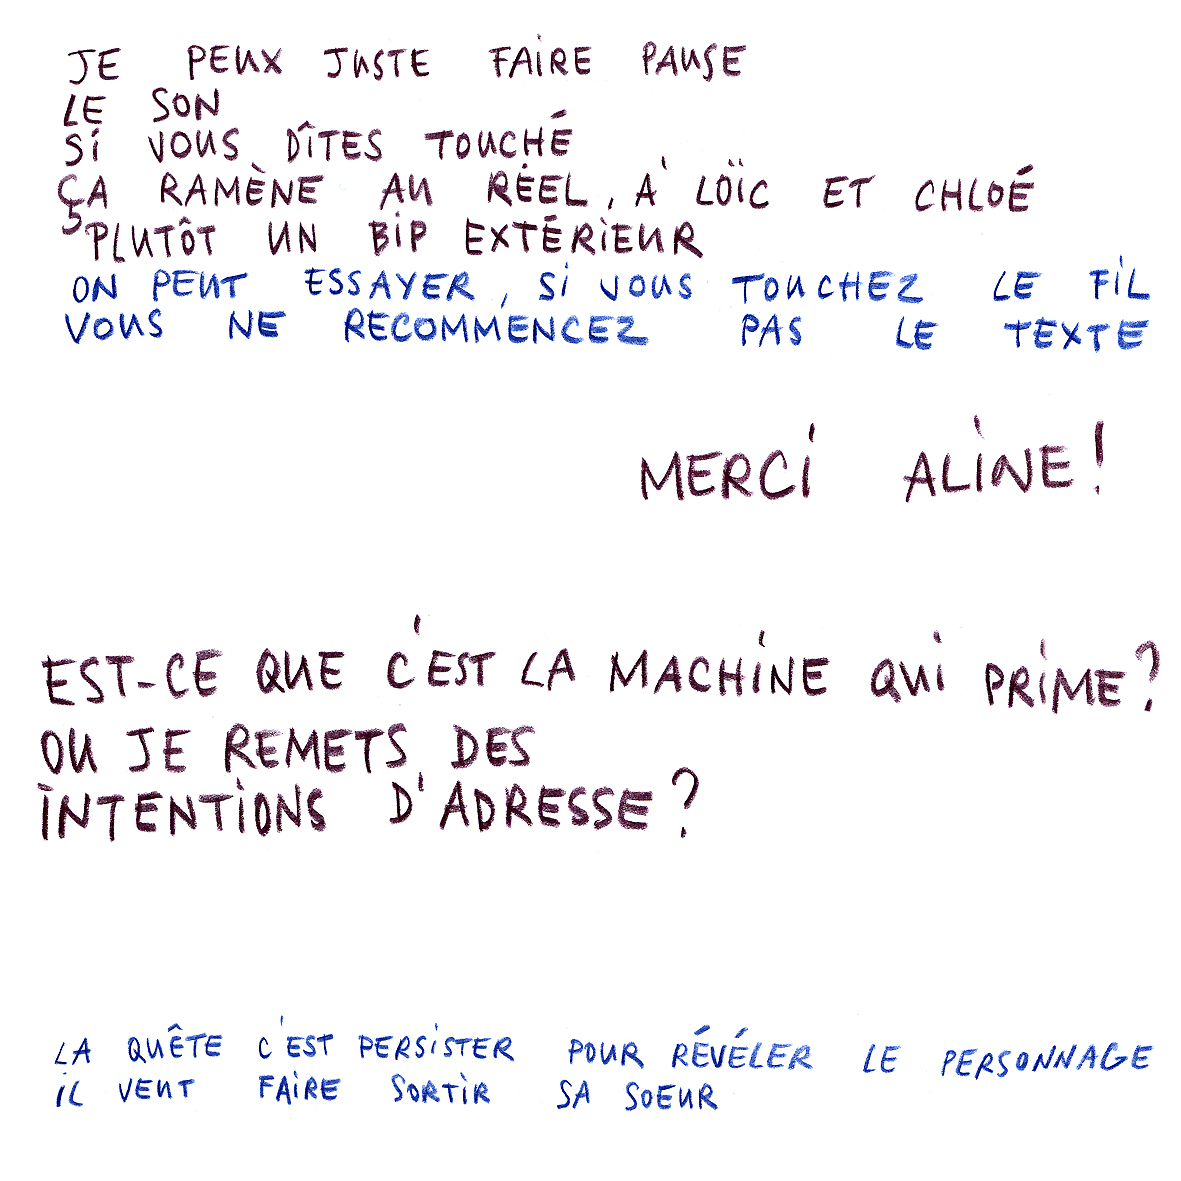 JE PEUX JUSTE FAIRE PAUSE
LE SON
SI VOUS DÎTES TOUCHÉ
ÇA RAMÈNE AU RÉEL, À LOÏC ET CHLOÉ
PLUTÔT UN BIP EXTÉRIEUR
ON PEUT ESSAYER, SI VOUS TOUCHEZ LE FIL
VOUS NE RECOMMENCEZ PAS LE TEXTE
MERCI ALINE!
EST-CE QUE C'EST LA MACHINE QUI PRIME?
OU JE REMETS DES
INTENTIONS D'ADRESSE?
LA QUÊTE C'EST PERSISTER POUR RÉVÉLER LE PERSONNAGE
IL VEUT FAIRE SORTIR SA SOEUR